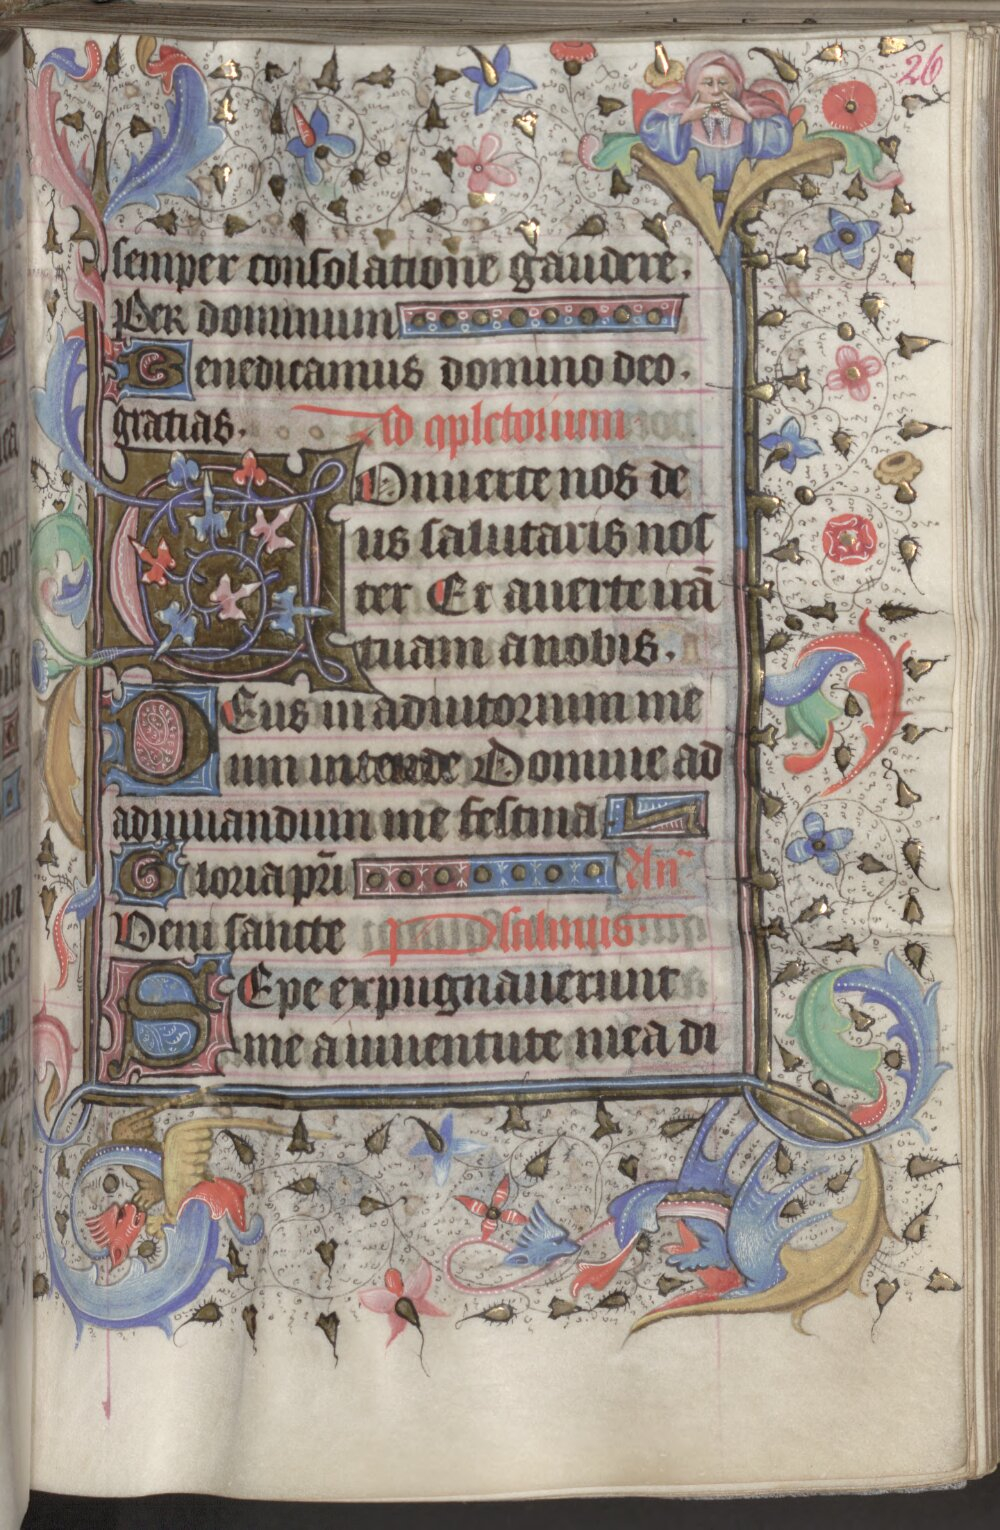 26
semper consolatione gaudere.
Per dominum
Benedicamus domino deo.
gratias. Ad cpletorium
Conuerte nos de
us salutaris nos
ter Et auerte irā
tuam a nobis.
Deus in adiutorium me
um intende Domine ad
adiuuandum me festina
Gloria pr̄i An̄
Veni sancte Psalmus.
Sepe expugnauerunt
me a iuuentute mea di